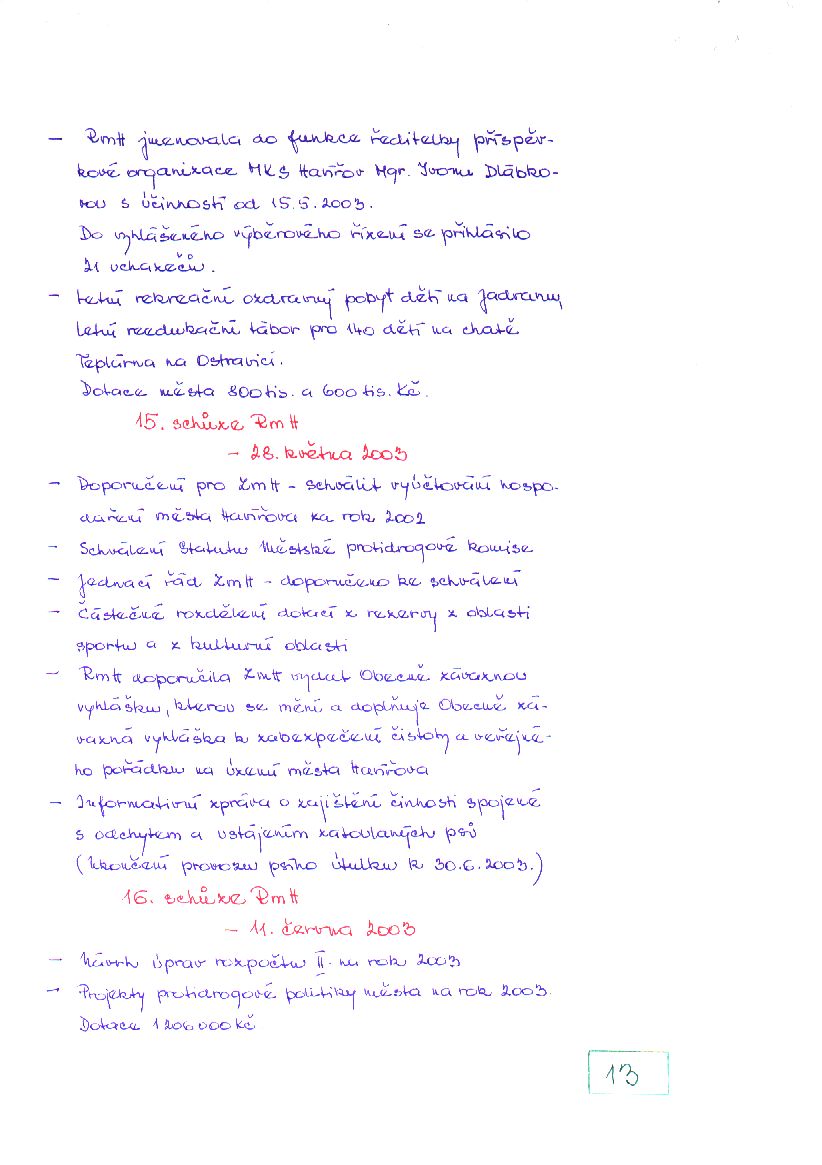 - RmH jmenovala do funkce ředitelky příspěv-
kové organizace MKS Havířov Mgr. Yvonu Dlábko-
vou s účinností od 15.5.2003.
Do vyhlášeného výběrového řízení se přihlásilo
21 uchazečů.
- Letní rekreační ozdravný pobyt dětí na Jadranu,
letní reedukační tábor pro 140 dětí na chatě
Teplárna na Ostravici.
Dotace města 800 tis. a 600 tis. Kč.
15. schůze RmH
- 28. května 2003
- Doporučení pro ZmH - schválit vyúčtování hospo-
daření města Havířova za rok 2002
- Schválení Statutu Městské protidrogové komise
- Jednací řád ZmH - doporučeno ke schválení
- Částečné rozdělení dotací z rezervy z oblasti
sportu a z kulturní oblasti
- RmH doporučila ZmH vydat Obecně závaznou
vyhlášku, kterou se mění a doplňuje Obecně zá-
vazná vyhláška k zabezpečení čistoty a veřejné-
ho pořádku na území města Havířova
- Informativní zpráva o zajištění činnosti spojené
s odchytem a ustájením zatoulaných psů
(Ukončení provozu psího útulku k 30.6.2003.)
16. schůze RmH
- 11. června 2003
- Návrh úprav rozpočtu II. na rok 2003
- Projekty protidrogové politiky města na rok 2003.
Dotace 1 206 000 Kč
13